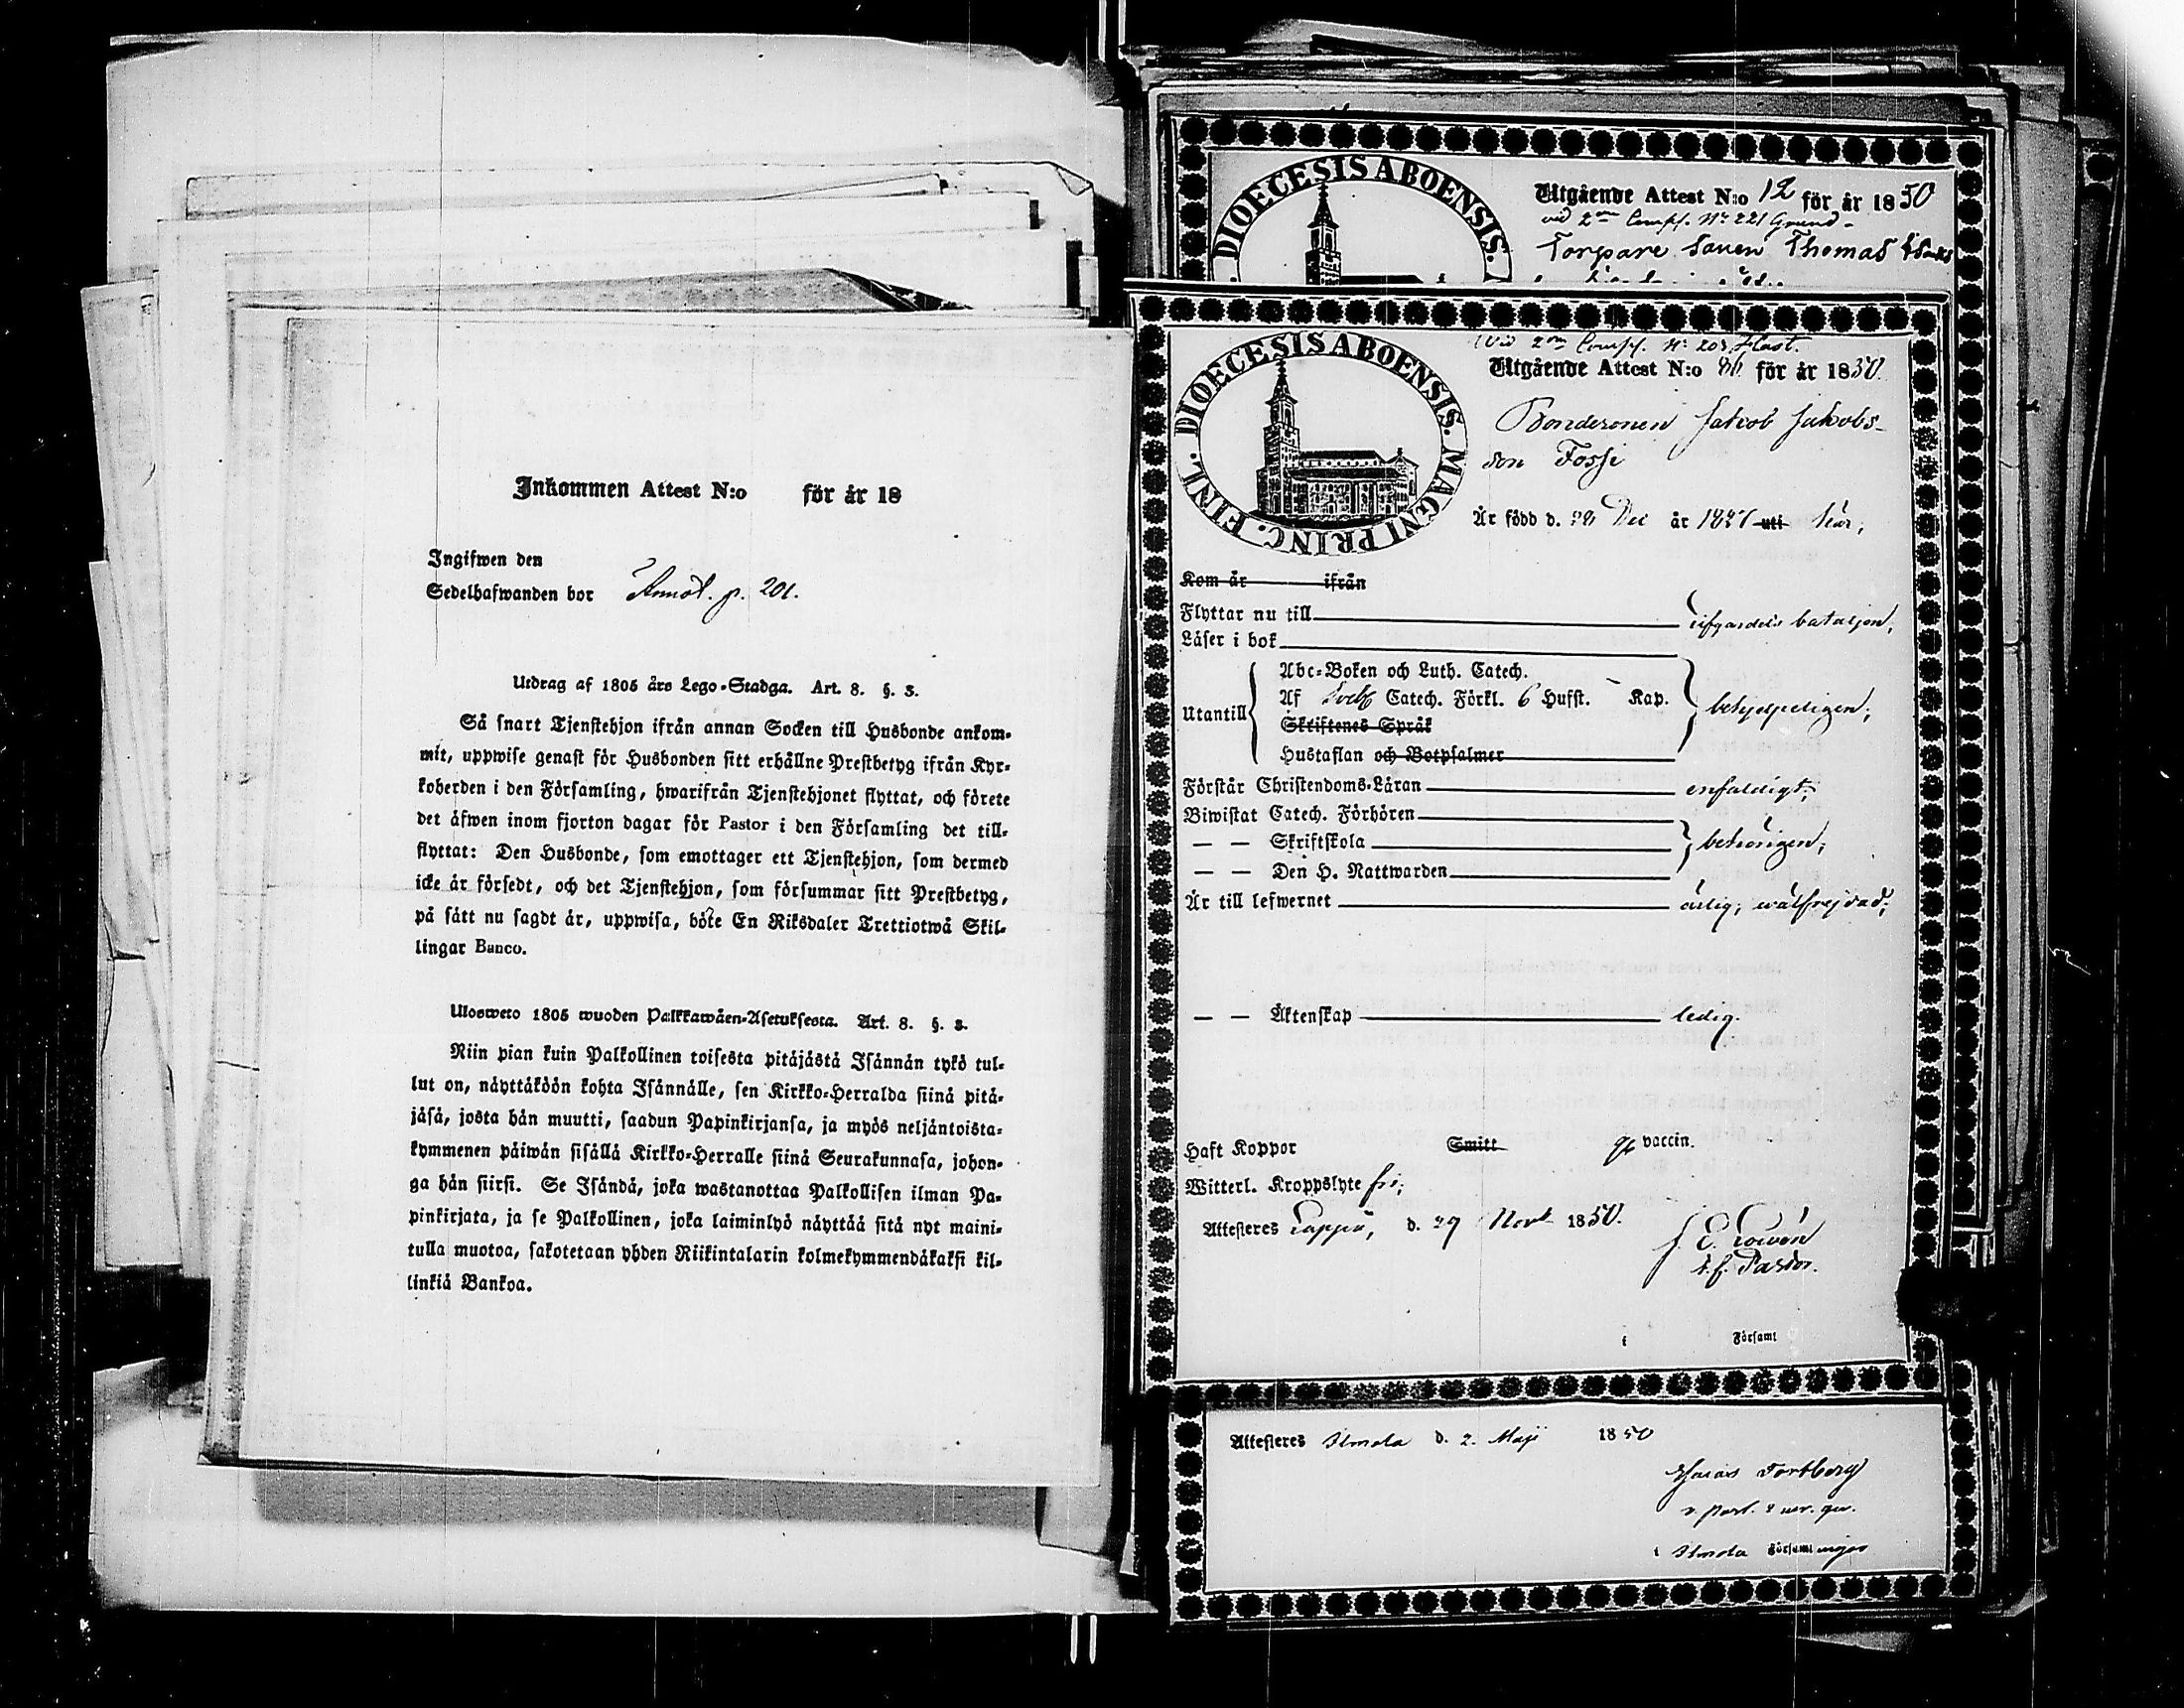 Inkommen Attest N:o för år 18
Ingifwen den
Sedelhafwanden bor Annot. p. 201.
Utdrag af 1805 års Lego-Stadga. Art. 8. §. 3.
Så snart Tjenstehjon ifrån annan Socken till Husbonde ankom-
mit, uppwise genast för Husbonden sitt erhållne Prestbetyg ifrån Kyr-
koherden i den Församling, hwarifrån Tjenstehjonet flyttat, och förete
det äfwen inom fjorton dagar för Pastor i den Församling det till-
flyttat: Den Husbonde, som emottager ett Tjenstehjon, som dermed
icke är försedt, och det Tjenstehjon, som försummar sitt Prestbetyg,
på sätt nu sagdt är, uppwisa, böte En Riksdaler Trettiotwå Skil-
lingar Banco.
Ulosweto 1805 wuoden Palkkawäen-Asetuksesta. Art. 8. §. 3.
Niin pian kuin Palkollinen toisesta pitäjästä Isännän tykö tul-
lut on, näyttäköön kohta Isännälle, sen Kirkko-Herralda siinä pitä-
jäsä, josta hän muutti, saadun Papinkirjansa, ja myös neljäntoista-
kymmenen päiwän sisällä Kirkko-Herralle siinä Seurakunnasa, johon-
ga hän siirsi. Se Isändä, joka wastanottaa Palkollisen ilman Pa-
pinkirjata, ja se Palkollinen, joka laiminlyö näyttää sitä nyt maini-
tulla muotoa, sakotetaan yhden Riikintalarin kolmekymmendäkaksi kil-
linkiä Bankoa.
DIOECESIS ABOENSIS.
Utgående Attest N:o 12 för år 1850
vid 2dra Comp. No 221 Grund-
Torpare Sonen Thomas
Vid 2dra Comp. No 203 Hast.
DIOECESIS ABOENSIS. MAGNI PRINC. FINL.
Utgående Attest N:o för år 1850.
Bondesonen Jakob Jakobs-
son Fossi
Är född d. 22 Dec år uti
Kom år ifrån
Flyttar nu till lifgardets bataljon,
Läser i bok
Utantill
Abc-Boken och Luth. Catech.
Af Sveb Catech. Förkl. 6 Hufst. - Kap. behjelpeligen,
Skriftenes Språk
Hustaflan och Botpsalmer
Förstår Christendoms-Läran enfaldigt,
Biwistat Catech. Förhören
— — Skriftskola behörigen,
— — Den H. Nattwarden
Är till lefwernet ärlig, wälfrejdad,
— — Äktenskap ledig.
Haft Koppor Smitt vaccin.
Witterl. Kroppslyte fri,
Attesteres Lappo, d. 29 Novb 1850.
J. E.
t. f. Pastor.
i Församl
Attesteres Ilmola d. 2. Maji 1850
Esaias Fortberg
i Ilmola Församlingar